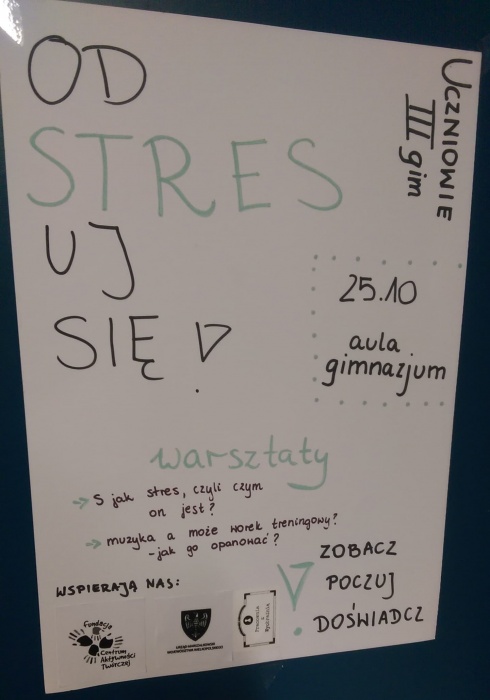 OD
STRES
UJ
SIĘ!
UCZNIOWIE
III gim
25.10
aula
gimnazjum
warsztaty
→ S jak stres, czyli czym
on jest?
→ muzyka a może worek treningowy?
- jak go opanować?
ZOBACZ
POCZUJ
! DOŚWIADCZ
WSPIERAJĄ NAS:
Fundacja
Centrum
Aktywności
Twórczej
URZĄD MARSZAŁKOWSKI
WOJEWÓDZTWA WIELKOPOLSKIEGO
Pracownia